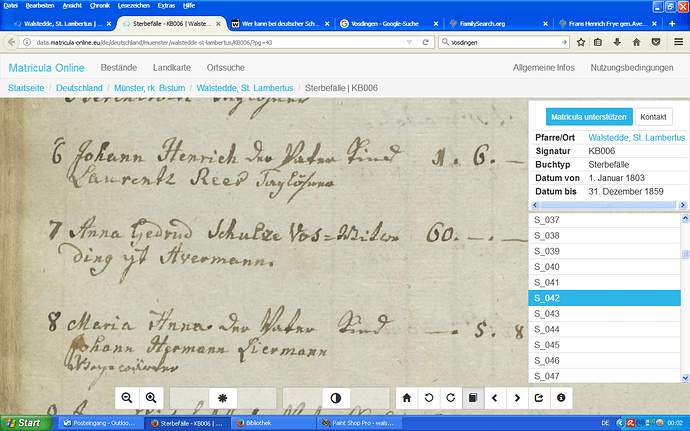 Datei Bearbeiten Ansicht Chronik Lesezeichen Extras Hilfe
Walstedde, St. Lambertus |
Sterbefälle - KB006 | Walst
Wer kann bei deutscher Sc
Vosdingen - Google-Suche
FamilySearch.org
Frans Henrich Frye gen.Ave
data.matricula-online.eu/de/deutschland/muenster/walstedde-st-lambertus/KB006/?pg=43
Vosdingen
Matricula Online Bestände Landkarte Ortssuche Allgemeine Infos Nutzungsbedingungen
Startseite / Deutschland / Münster, rk. Bistum / Walstedde, St. Lambertus / Sterbefälle | KB006
6 Johann Henrich der Vater Kind 1. 6. —
Laurentz Reer
7 Anna Gedrud Schulze Vos= 60. —. —
ding Avermann.
8 Maria Anna der Vater Kind —. 5. 8
Johann Hermann Liermann
Matricula unterstützen Kontakt
Pfarre/Ort Walstedde, St. Lambertus
Signatur KB006
Buchtyp Sterbefälle
Datum von 1. Januar 1803
Datum bis 31. Dezember 1859
S_037
S_038
S_039
S_040
S_041
S_042
S_043
S_044
S_045
S_046
S_047
Start
Posteingang - Outloo...
Sterbefälle - KB006 | ...
Bibliothek
Paint Shop Pro - wals...
DE
00:02